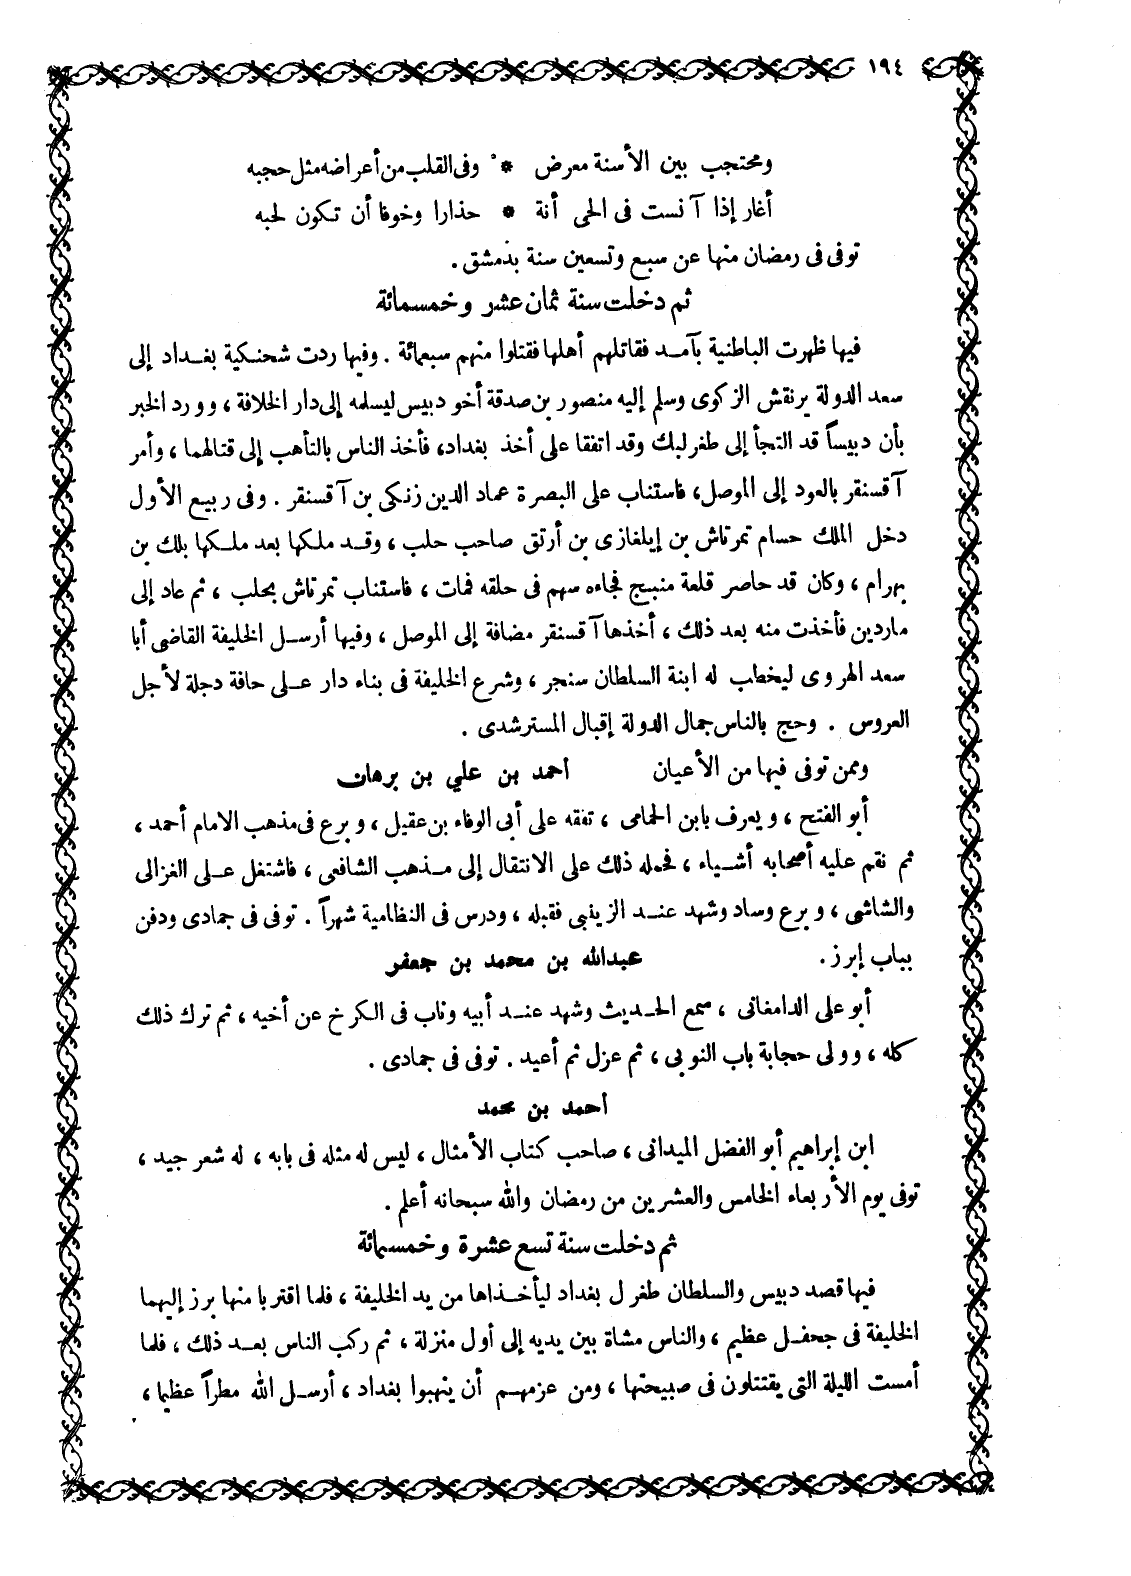 ١٩٤
ومحتجب بين الأسنة معرض * وفى القلب من أعراضه مثل حجبه
أغار إذا آنست فى الحى أنة * حذارا وخوفا أن تكون لحبه
توفى فى رمضان منها عن سبع وتسعين سنة بدمشق .
ثم دخلت سنة ثمان عشر وخمسمائة
فيها ظهرت الباطنية بآمد فقاتلهم أهلها فقتلوا منهم سبعمائة . وفيها ردت شحنكية بغداد إلى
سعد الدولة يرنقش الزكوى وسلم إليه منصور بن صدقة أخو دبيس ليسلمه إلى دار الخلافة ، وورد الخبر
بأن دبيساً قد التجأ إلى طغرلبك وقد اتفقا على أخذ بغداد، فأخذ الناس بالتأهب إلى قتالهما ، وأمر
آقسنقر بالعود إلى الموصل، فاستناب على البصرة عماد الدين زنكى بن آقسنقر . وفى ربيع الأول
دخل الملك حسام تمرتاش بن إيلغازى بن أرتق صاحب حلب ، وقد ملكها بعد ملكها بلك بن
بهرام ، وكان قد حاصر قلعة منبج فجاءه سهم فى حلقه فمات ، فاستناب تمرتاش بحلب ، ثم عاد إلى
ماردين فأخذت منه بعد ذلك ، أخذها آقسنقر مضافة إلى الموصل ، وفيها أرسل الخليفة القاضى أبا
سعد الهروى ليخطب له ابنة السلطان سنجر ، وشرع الخليفة فى بناء دار على حافة دجلة لأجل
العروس . وحج بالناس جمال الدولة إقبال المسترشدى .
وممن توفى فيها من الأعيان أحمد بن علي بن برهان
أبو الفتح ، ويعرف بابن الحمامى ، تفقه على أبى الوفاء بن عقيل ، وبرع فى مذهب الامام أحمد ،
ثم نقم عليه أصحابه أشياء ، فحمله ذلك على الانتقال إلى مذهب الشافعى ، فاشتغل على الغزالى
والشاشى ، وبرع وساد وشهد عند الزينبى فقبله ، ودرس فى النظامية شهراً . توفى فى جمادى ودفن
بباب إبرز . عبدالله بن محمد بن جعفر
أبو على الدامغانى ، سمع الحديث وشهد عند أبيه وناب فى الكرخ عن أخيه ، ثم ترك ذلك
كله ، وولى حجابة باب النوبى ، ثم عزل ثم أعيد . توفى فى جمادى .
أحمد بن محمد
ابن إبراهيم أبو الفضل الميدانى ، صاحب كتاب الأمثال ، ليس له مثله فى بابه ، له شعر جيد ،
توفى يوم الأربعاء الخامس والعشرين من رمضان والله سبحانه أعلم .
ثم دخلت سنة تسع عشرة وخمسمائة
فيها قصد دبيس والسلطان طغرل بغداد ليأخذاها من يد الخليفة ، فلما اقتربا منها برز إليهما
الخليفة فى جحفل عظيم ، والناس مشاة بين يديه إلى أول منزلة ، ثم ركب الناس بعد ذلك ، فلما
أمست الليلة التى يقتتلون فى صبيحتها ، ومن عزمهم أن ينهبوا بغداد ، أرسل الله مطراً عظيما ،